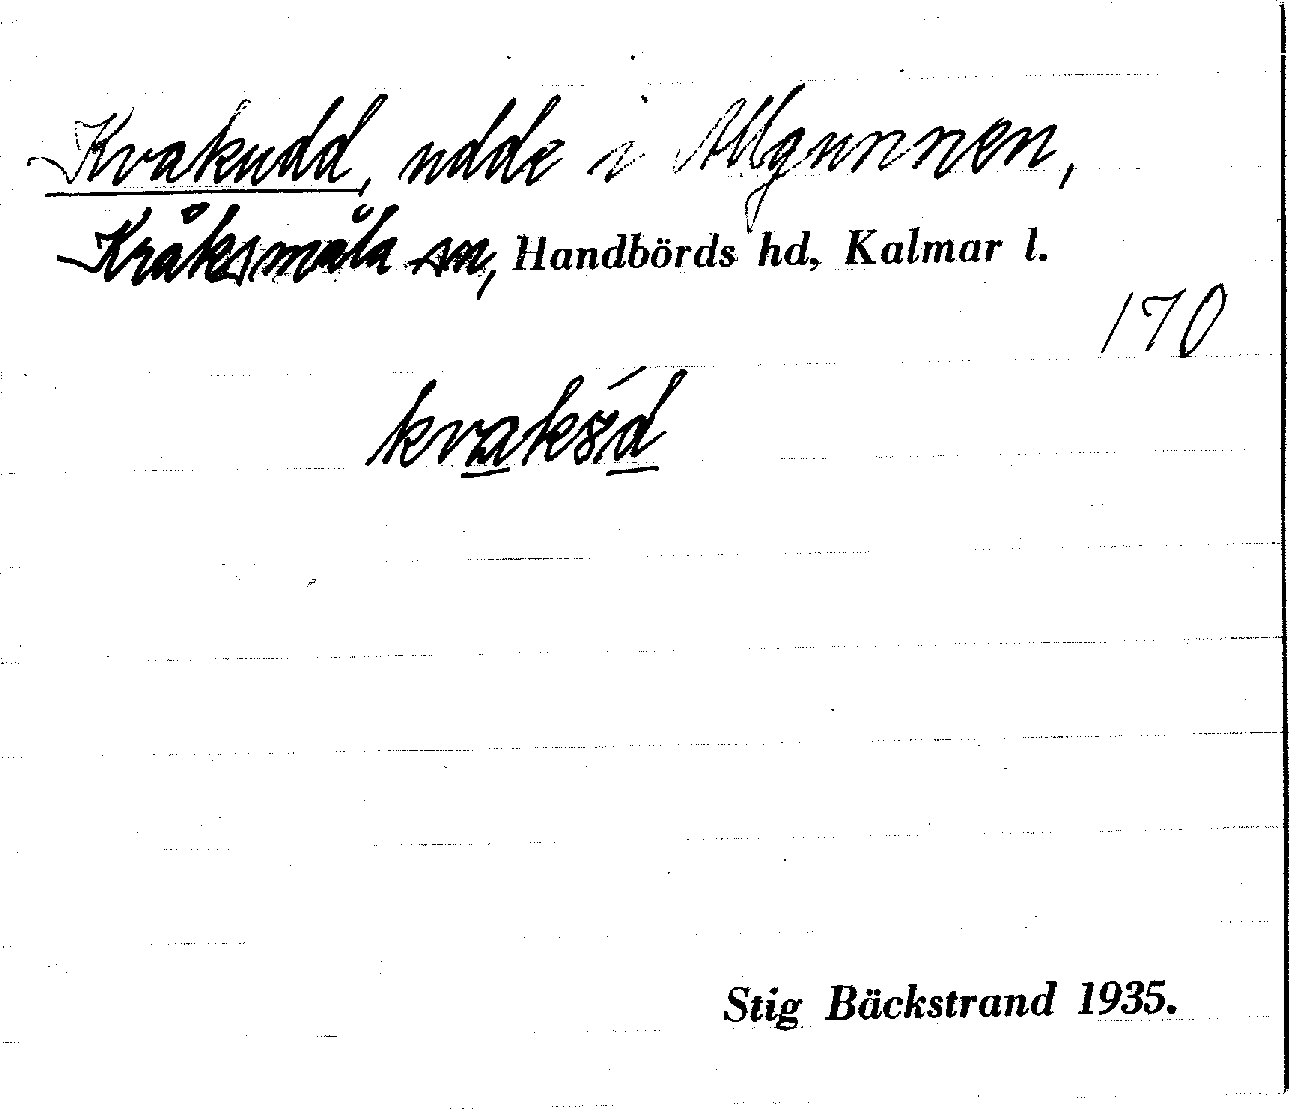 Kvakudd, udde i Allgunnen,
Kråksmåla sn, Handbörds hd, Kalmar l.
170
Stig Bäckstrand 1935.